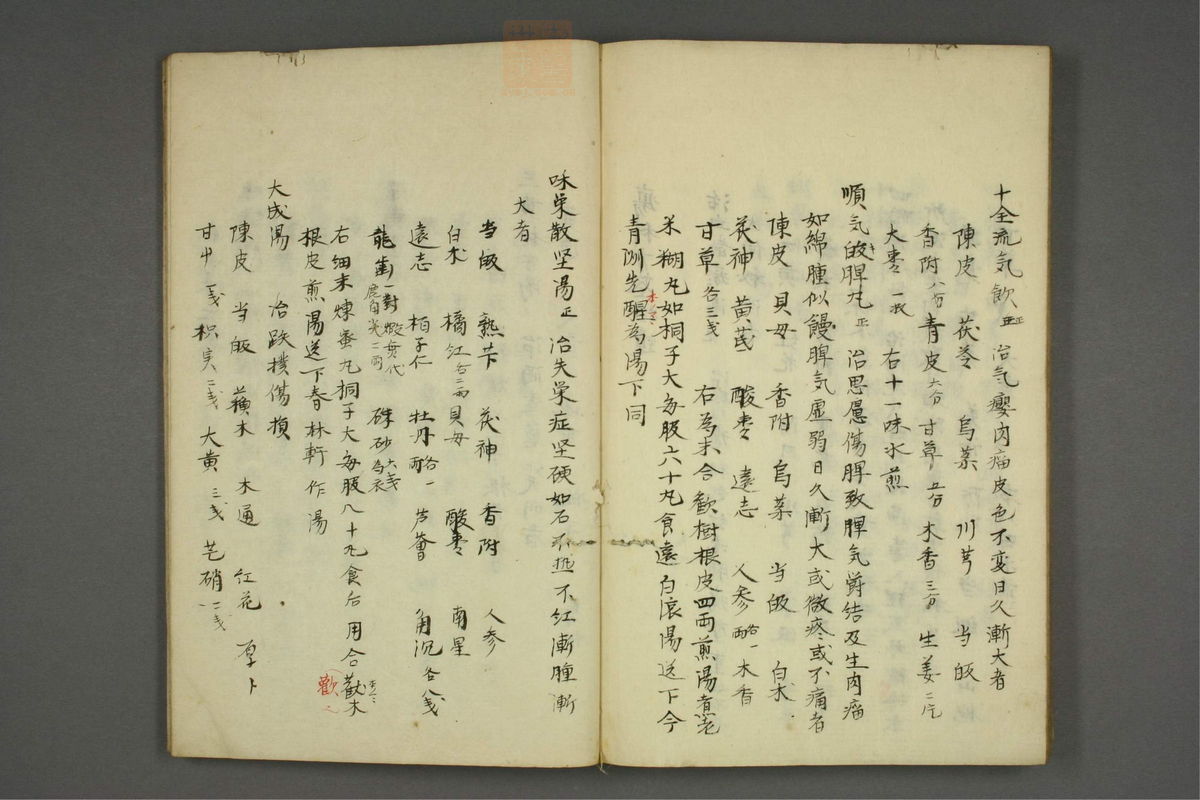 十全流気飲 正 治気癭肉瘤皮色不変日久漸大者
陳皮 茯苓 烏薬 川芎 当皈
香附 八分 青皮 六分 甘草 五分 木香 三分 生姜 二片
大棗 一枚 右十一味水煎
順気皈脾丸 正 治思慮傷脾致脾気欝結及生肉瘤
如綿腫似饅脾気虚弱日久漸大或微疼或不痛者
陳皮 貝母 香附 烏薬 当皈 白朮
茯神 黄芪 酸棗 遠志 人参 各一両 木香
甘草 各三戋 右為末合歓樹根皮四両煎湯煮老
米糊丸如桐子大每服六十丸食遠白滾湯送下今
青洲先醒為湯下同
味栄散坚湯 正 治失栄症坚硬如石不热不红漸腫漸
大者
当皈 熟芐 茯神 香附 人参
白朮 橘红 各二両 貝母 酸棗 南星
遠志 柏子仁 牡丹 各一両 芦薈 角沉 各八戋
龍歯 一對 硃砂 六戋為衣
右細末煉蜜丸桐子大每服八十丸食后用合歡木
根皮煎湯送下春林軒作湯
歡
大成湯 治跌撲傷損
陳皮 当皈 蘇木 木通 红花 厚卜
甘中 一戋 枳实 二戋 大黄 三戋 芒硝 二戋